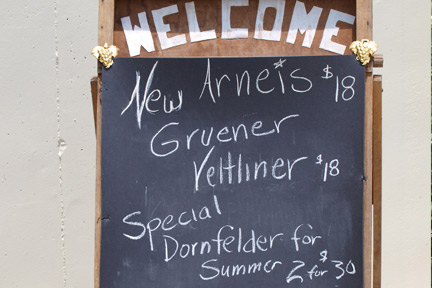 WELCOME
New Arneis $18
Gruener
Veltliner $18
Special
Dornfelder for
Summer 2 for $30